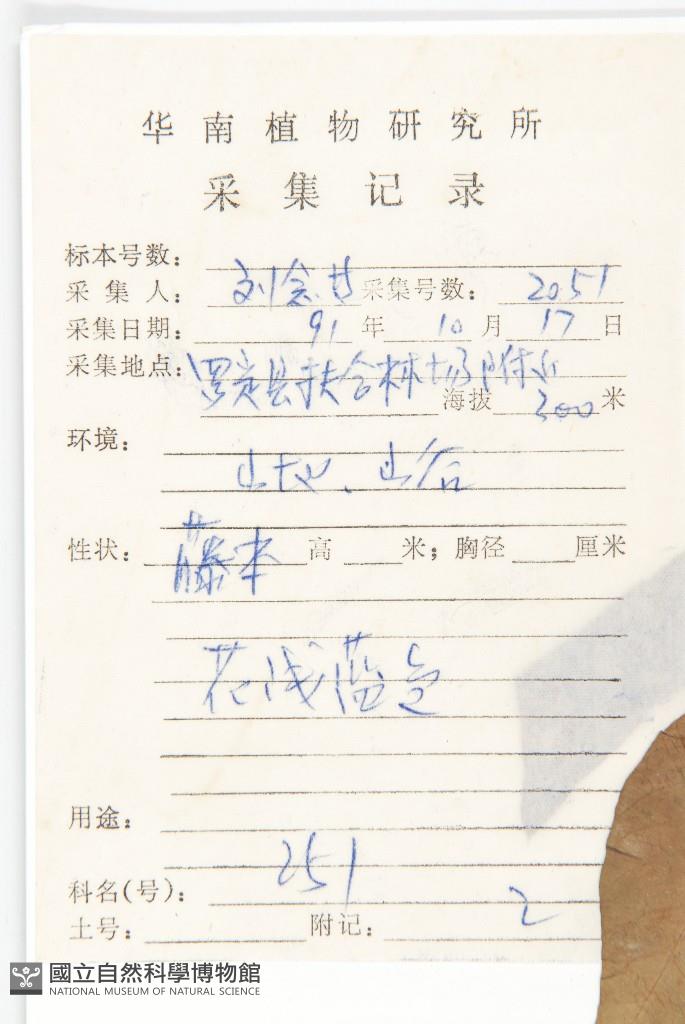 华南植物研究所
采集记录
标本号数:
采集人: 刘念 采集号数: 2051
采集日期: 91 年 10 月 17 日
采集地点: 罗定县扶合林场附近
海拔 300 米
环境:
山地、山谷
性状: 藤本 高 米; 胸径 厘米
花浅蓝色
用途:
科名(号): 251
土号: 附记: 2
國立自然科學博物館
NATIONAL MUSEUM OF NATURAL SCIENCE